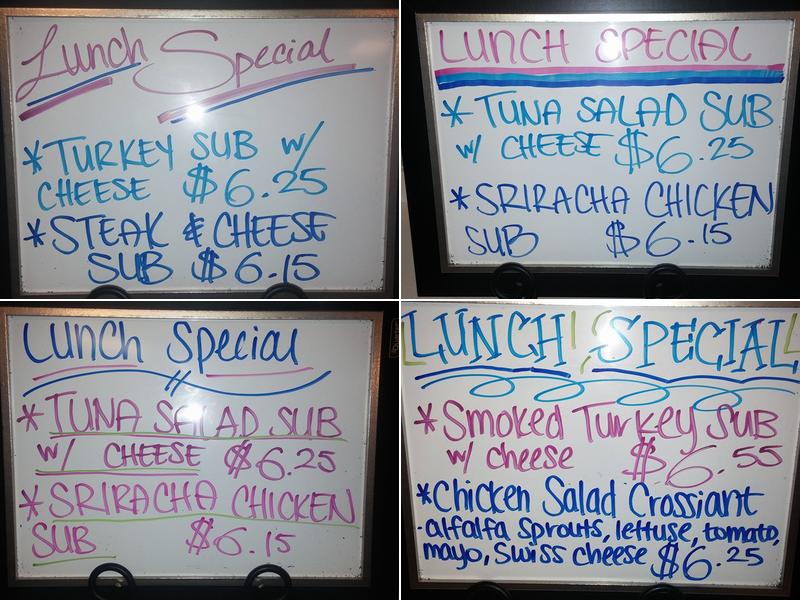 Lunch Special
*TURKEY SUB w/
CHEESE $6.25
*STEAK & CHEESE
SUB $6.15
LUNCH SPECIAL
* TUNA SALAD SUB
w/ CHEESE $6.25
* SRIRACHA CHICKEN
SUB $6.15
Lunch Special
* TUNA SALAD SUB
w/ CHEESE $6.25
* SRIRACHA CHICKEN
SUB $6.15
LUNCH! SPECIAL!
* Smoked Turkey SUB
w/ cheese $6.55
*Chicken Salad Crossiant
-alfalfa sprouts, lettuse, tomato,
mayo, Swiss cheese $6.25